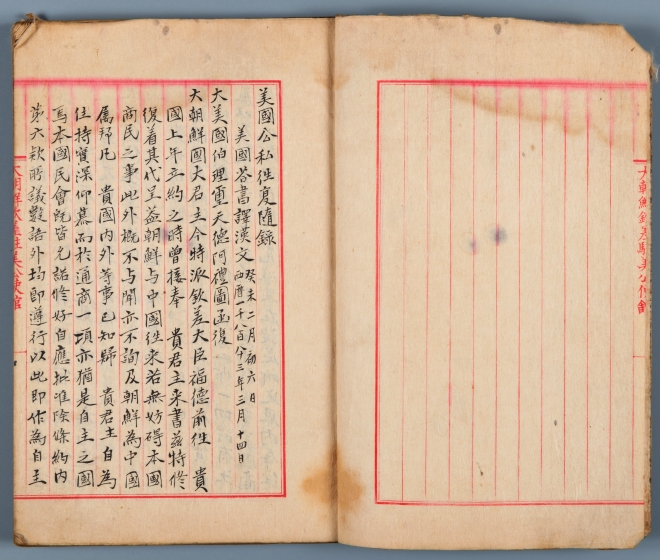 大朝鮮欽差駐美公使館
美國公私往復隨錄
美國答書譯漢文 癸未二月初六日
西曆一千八百八十三年三月十四日
大美國伯理璽天德阿禮圖函復
大朝鮮國大君主今特派欽差大臣福德前往 貴
國上年立約之時曾接奉 貴君主來書茲特修
復着其代呈益朝鮮與中國往來若無妨碍本國
商民之事此外概不與聞亦不詢及朝鮮為中國
屬邦凡 貴國內外等事已知歸 貴君主自為
住持實深仰慕而於通商一項亦猶是自主之國
焉本國民會既皆允諾修好自應批准除條約內
第六款所議數語外均即遵行以此即作為自主
大朝鮮欽差駐美公使館